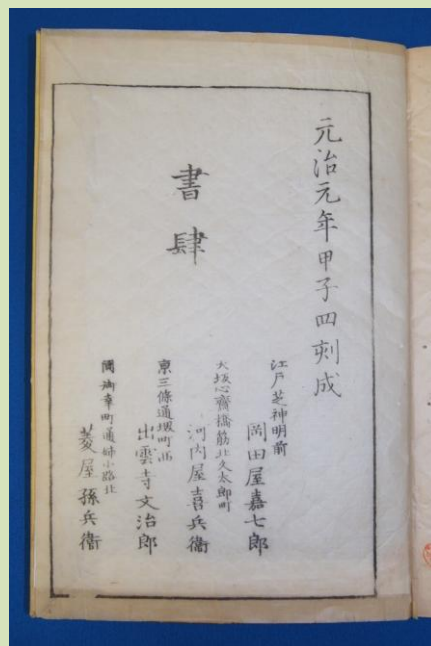 元治元年甲子四刻成
書肆
江戸芝神明前
岡田屋嘉七郎
大坂心齋橋筋北久太郎町
河内屋喜兵衞
京三條通堺町西
出雲寺文治郎
同御幸町通姉小路北
菱屋孫兵衞